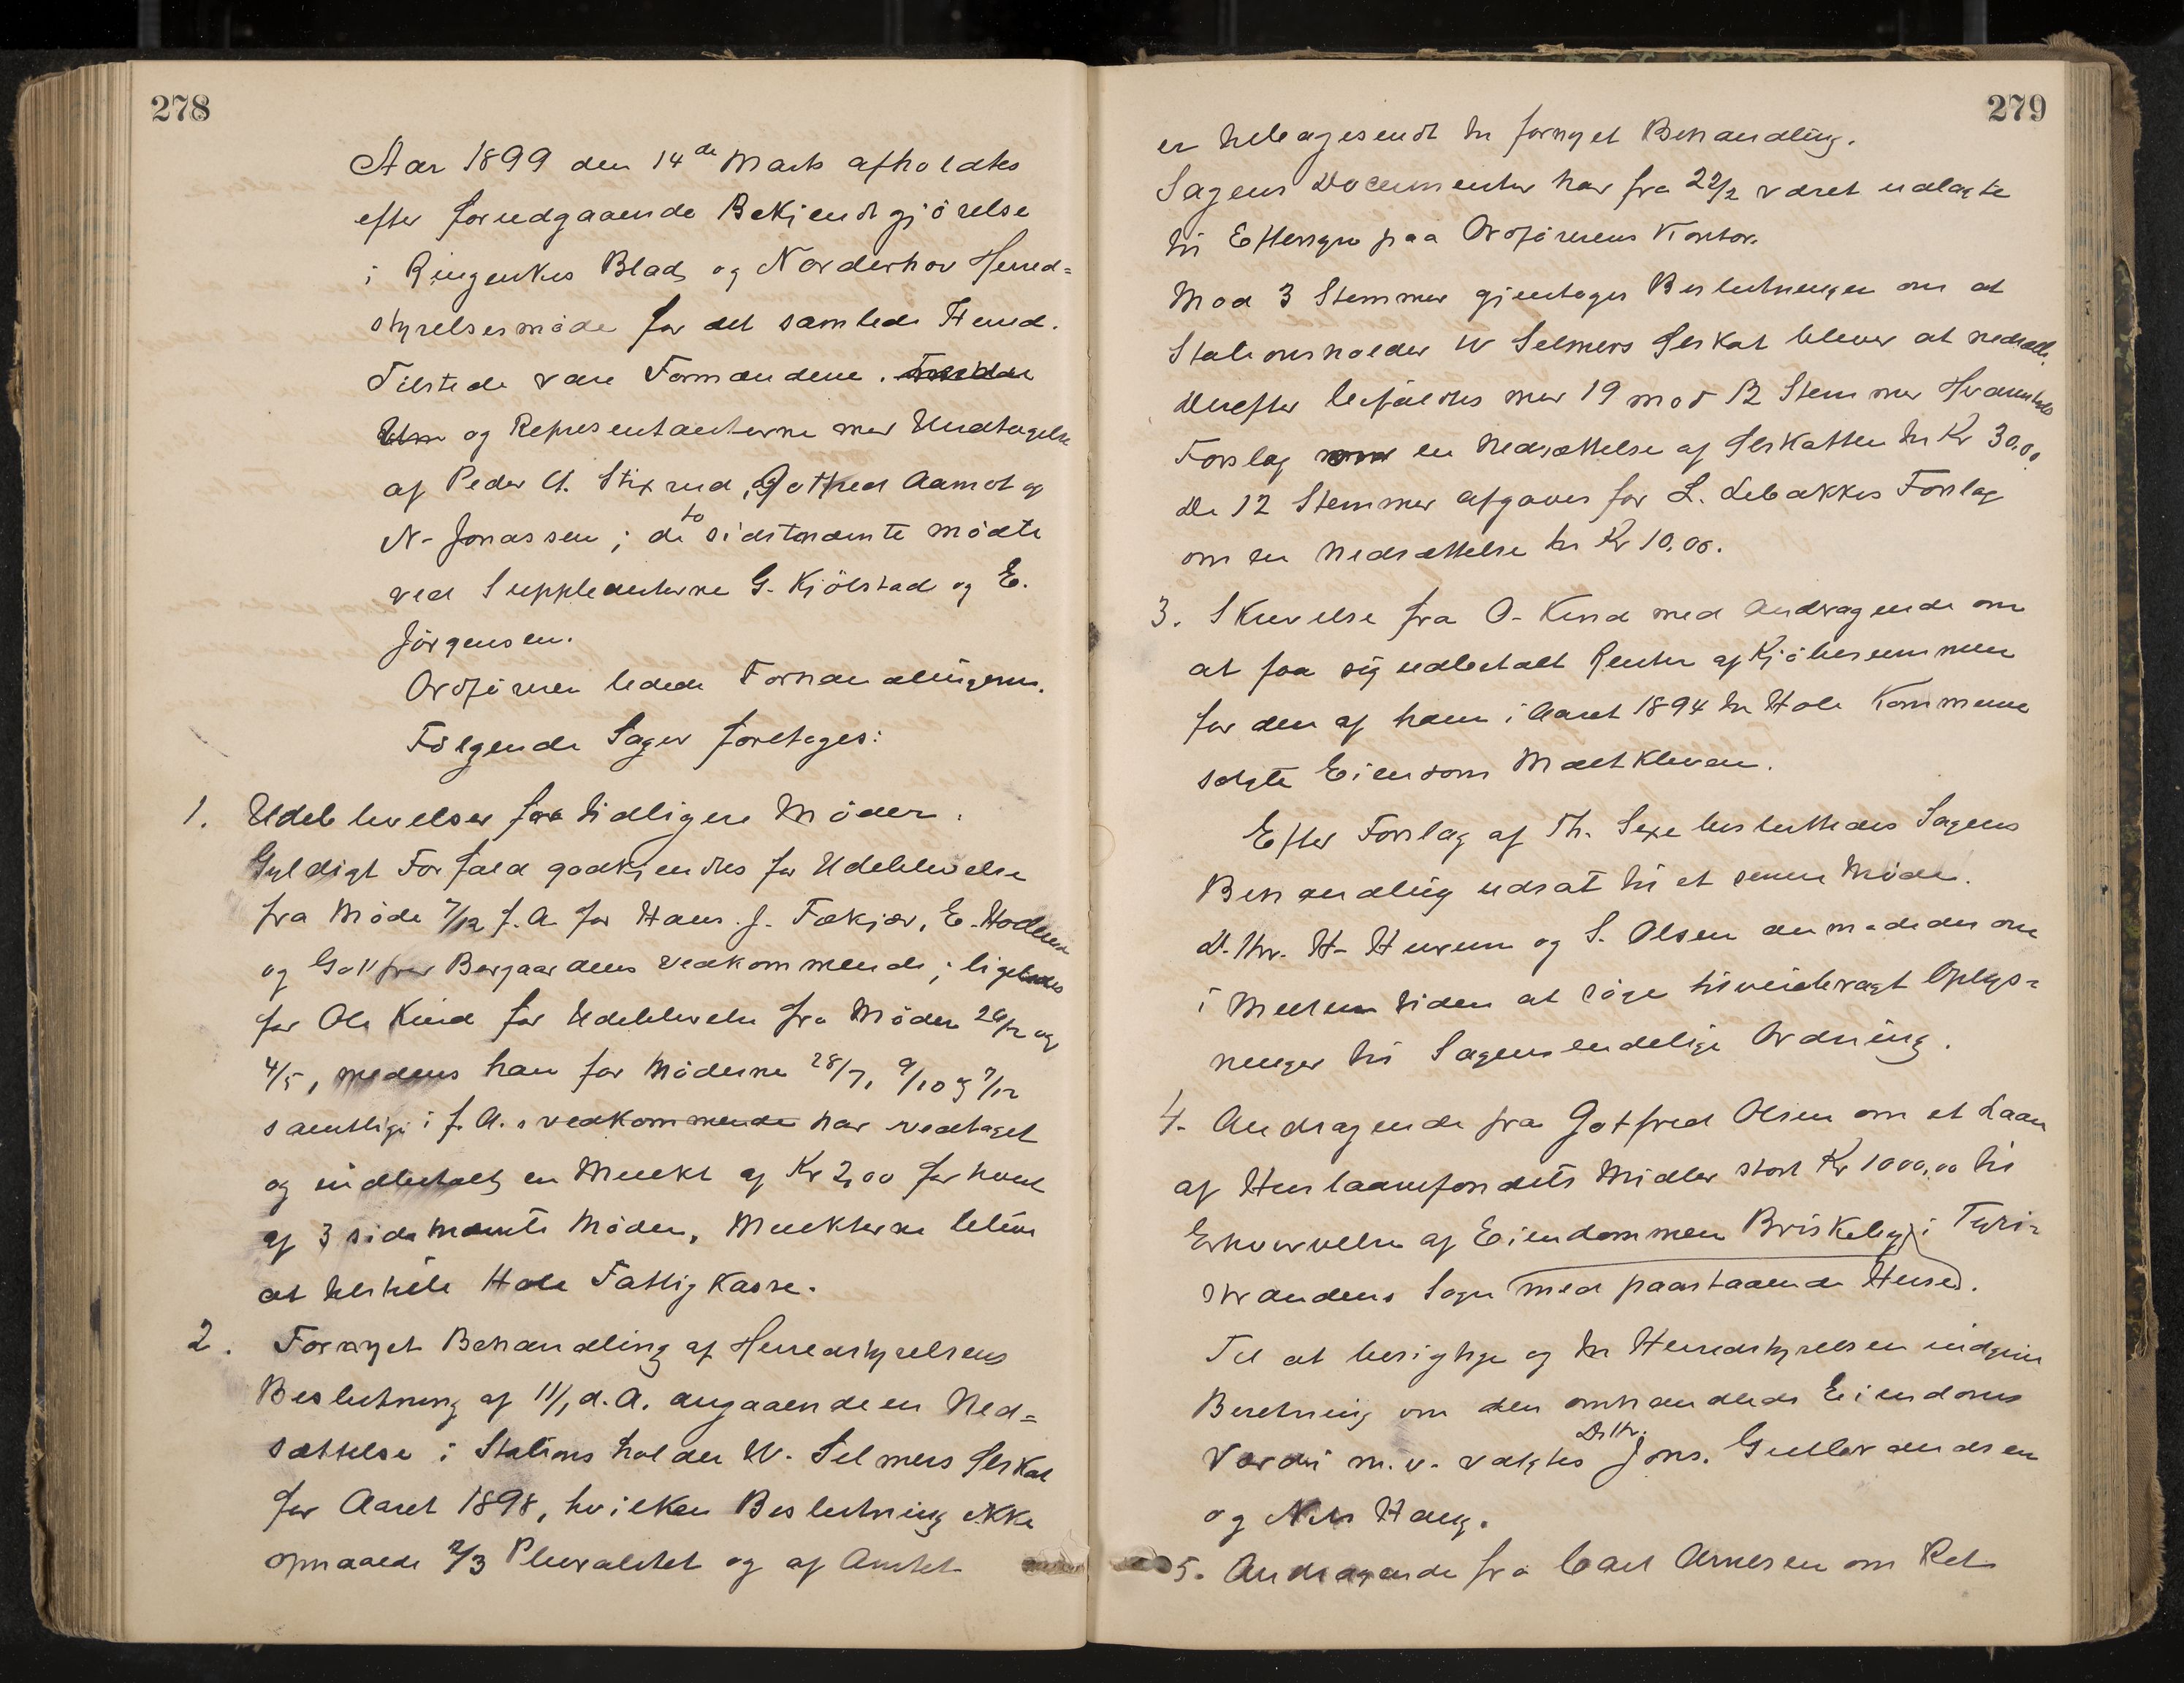 278
Aar 1899 den 14de Marts afholdtes
efter forudgaaende Bekjendtgjörelse
i Ringerikes Blad og Norderhov Herred=
styrelsesmöde for det samlede Herred.
Tilstede vare Formændene.
og Repræsentanterne med Undtagelse
af Peder A. Stixrud, Gotfred Aamot og
N. Jonassen; de to sidstnævnte mödte
ved Suppleanterne G. Kjölstad og E.
Jörgensen.
Ordföreren ledede Forhandlingerne.
Fölgende Sager foretoges:
1. Udeblivelser fra tidligere Möder.
Gyldigt Forfald godkjendtes for Udeblivelse
fra Möde 7/12 f. A. for Hans J. Fækjær, E.
og Gottfred Borgaardens Vedkommende; ligeledes
for Ole Kind for Udeblivelse fra Möder 26/2 og
4/5, medens han for Möderne 28/7, 9/10 og 7/12
samtlige i f. A. s vedkommende har vedtaget
og indbetalt en Mulkt af Kr 2,00 for hvert
af 3 sidstnævnte Möder, Mulkterne bliver
at tilstille Hole Fattigkasse.
2. Fornyet Behandling af Herredstyrelsens
Beslutning af 11/1 d. A. angaaende en Ned=
sættelse i Stationsholder W. Selmers Skat
for Aaret 1898, hvilken Beslutning ikke
opnaaede 2/3 Pluralitet og af Amtet
279
er tilbagesendt til fornyet Behandling.
Sagens Documenter har fra 22/2 været udlagte
til Eftersyn paa Ordförerens Kontor.
Mod 3 Stemmer gjentoges Beslutningen om at
Stationsholder W Selmers Skat bliver at nedsætte.
Derefter besluttedes med 19 mod 12 Stemmer
Forslag om en Nedsættelse af Skatten til Kr 30.00
De 12 Stemmer afgaves for L. Libakkes Forslag
om en Nedsættelse til Kr 10.00.
3. Skrivelse fra O. Kind med Andragende om
at faa sig udbetalt Renter af Kjöbesummen
for den af ham i Aaret 1894 til Hole Kommune
solgte Eiendom Mælkleven.
Efter Forslag af Th. Sexe besluttedes Sagens
Behandling udsat til et senere Möde.
D. Hrr. H. Hurum og S. Olsen anmodedes om
i Mellemtiden at söge tilveiebragt Oplys=
ninger til Sagens endelige Ordning.
4. Andragende fra Gotfred Olsen om et Laan
af Huslaanefondets Midler stort Kr 1000,00 til
Erhvervelse af Eiendommen Briskeby i Tyri=
strandens Sogn (med paastaaende Huse).
Til at besigtige og til Herredstyrelsen indgive
Beretning om den omhandlede Eiendoms
Værdi m. v. valgtes D'Hr. Johs. Gulbrandsen
og Nils Haug.
5. Andragende fra Carl Arnesen om Ret